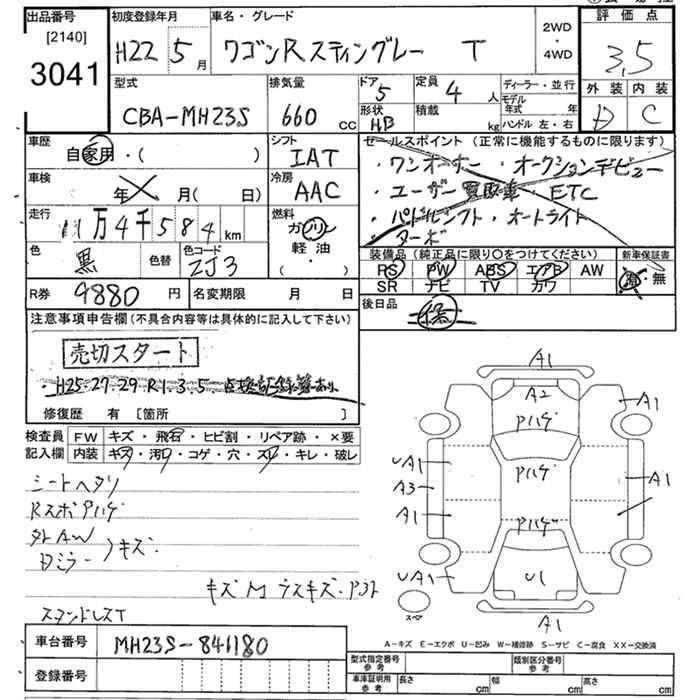 出品番号
[2140]
3041
初度登録年月
H22 5月
車名・グレード
ワゴンRスティングレー T
2WD
・
4WD
評価点
3.5
外装 内装
D C
型式
CBA-MH23S
排気量
660 cc
ドア 5
定員 4 人
形状 HB
積載 kg
ディーラー・並行
モデル年式 年
ハンドル 左・右
車歴
自家用・( )
シフト
IAT
セールスポイント(正常に機能するものに限ります)
・ワンオーナー ・オークションデビュー
・ユーザー買取車・ETC
・パドルシフト・オートライト
・ターボ
車検
年 月( 日)
冷房
AAC
走行
11万4千584km
燃料
ガソリン
軽・油
・( )
色
黒
色替
色コード
ZJ3
装備品(純正品に限り○をつけてください)
PS PW ABS エアB AW
SR ナビ TV カワ
新車保証書
有・無
R券 9880円
名変期限 月 日
後日品
注意事項申告欄(不具合内容等は具体的に記入して下さい)
売切スタート
・H25・27・29・R1・3・5 点検記録簿あり
修復歴 有 [箇所 ]
検査員
記入欄
FW キズ・飛石・ヒビ割・リペア跡・×要
内装 キズ・汚レ・コゲ・穴・スレ・キレ・破レ
シートヘタリ
RスポPハゲ
外AW
Dミラー
キズ
スタンドレスT
A1
A2
Pハゲ
A1
UA1
Pハゲ
A3
A1
A1
Pハゲ
UA1
U1
A1
スペア
A1
A-キズ E-エクボ U-凹み W-補修跡 S-サビ C-腐食 XX-交換済
車台番号 MH23S-841180
登録番号
型式指定番号 参考
類別区分番号 参考
車庫証明用 参考
長さ cm 幅 cm 高さ cm